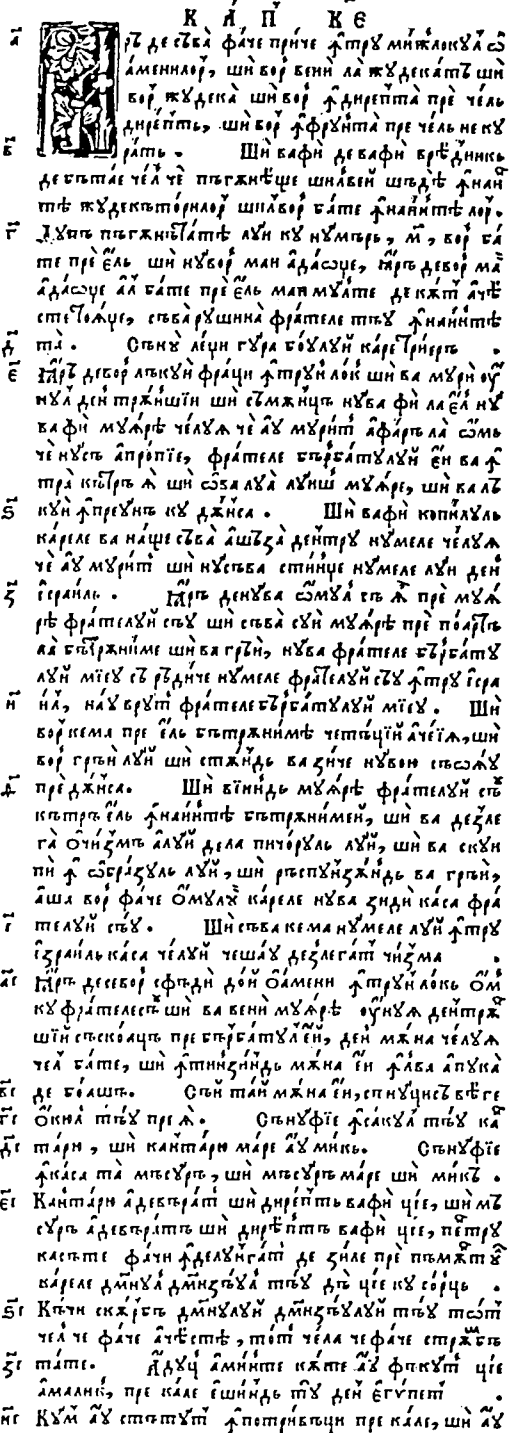 КАП КЕ
а҃ Ꙗръ де съва фаче приче ꙟтру мижлокул ѡ
аменилор, ши вор вени ла жудекатъ ши
вор жудека ши вор ꙟдирепта пре чель
дирепть, ши вор ꙟфрунта пре чель неку
в҃ рать. Ши вафи де вафи врѣдникь
де бътае чел че пъгънѣще шилвей шѣдѣ ꙟнаи
тѣ жудекъторилор шилвор бате ꙟнаинтѣ лор.
г҃ Дупъ пъгънѣтате луи ку нумъръ, м҃, вор ба
те пре ель ши нувор маи адаѡце, ꙗръ девор маи
адаѡце ал бате пре ель маи мулте де кѫт ачѣ
сте тоѧце, съва рушина фрателе тъу ꙟнаинтѣ
д҃ та. Сънꙋ леџи гура боулуй каре триеръ.
е҃ Ꙗръ девор лъкуй фраци ꙟтруй лок ши ва мури оу
нул ден трѫншїи ши съмѫнцъ нува фи ла ел нꙋ
вафи муѧрѣ челуѧ че ау мурит афаръ ла ѡмь
че нусъ апропїе, фрателе бърбатулуй ей ва ꙟ
тра кътръ ѧ ши ѡва луа луиш муѧре, ши ва лъ
ѕ҃ куй ꙟпреунъ ку дѫнса. Ши вафи копилуль
кареле ва наще съва ашъза дентру нумеле челуѧ
че ау мурит ши нусъва стинџе нумеле луи ден
з҃ Ісраиль. Ꙗръ денува ѡмул съ ꙗ пре муѧ
рѣ фрателуй съу ши съва суй муѧрѣ пре поартъ
ла бътрѫниме ши ва грѣи, нува фрателе бърбату
луй мїеу съ рѣдиче нумеле фрателуй съу ꙟтру ісра
и҃ ил, нау врут фрателе бърбатулуй мїеу. Ши
вор кема пре ель бътрѫнимѣ четъцїй ачеїѧ, ши
вор грѣи луй ши стѫндь ва зиче нувою съѡѧꙋ
ѳ҃ пре дѫнса. Ши вїиндь муѧрѣ фрателуй съу
кътръ ель ꙟнаинтѣ бътрѫнимей, ши ва дезле
га ѡчизмъ алуй дела пичоруль луй, ши ва скуи
пи ꙟ ѡбразуль луй, ши ръспунзѫндь ва грѣи,
аша вор фаче ѡмулуй кареле нува зиди каса фра
і҃ телуй съу. Ши съва кема нумеле луй ꙟтру
Ізраиль каса челуй чешау дезлегат чизма.
аі҃ Ꙗръ десевор сфъди дой ѡамени ꙟтруй локь ѡм
ку фрателесъу ши ва вени муѧрѣ оунуѧ дентрѫ
шїй съскоацъ пре бърбатул ей, ден мѫна челуѧ
чел бате, ши ꙟтинзѫндь мѫна ей ꙟлва апука
ві҃ де боашъ. Съй тай мѫна ей, съ нуцисъ вѣге
гі҃ ѡкюл тъу пре ѧ. Сънуфїе ꙟсакул тъу ка
ді҃ тарю, ши кантарю маре ау микь. Сънуфїе
ꙟкаса та мъсуръ, ши мъсуръ маре ши микъ.
еі҃ Кантарю адевърат ши дирепть вафи цїе, ши мъ
суръ адевъратъ ши дирѣптъ вафи цїе, пентру
касъте фачи ꙟделунгат де зиле пре пъмѫнтꙋ
кареле дмнул дмнзъул тъу дъ цїе ку сорць.
ѕі҃ Къчи скѫрбъ дмнулуй дмнзъулуй тъу тот
чел че фаче ачѣстѣ, тот чела че фаче стрѫмбъ
зі҃ тате. Адуць аминте кѫте ау фъкут цїе
амалик, пре кале ешиндь ту ден егѵпет.
иі҃ Кум ау стътут ꙟпотривъци пре кале, ши ау